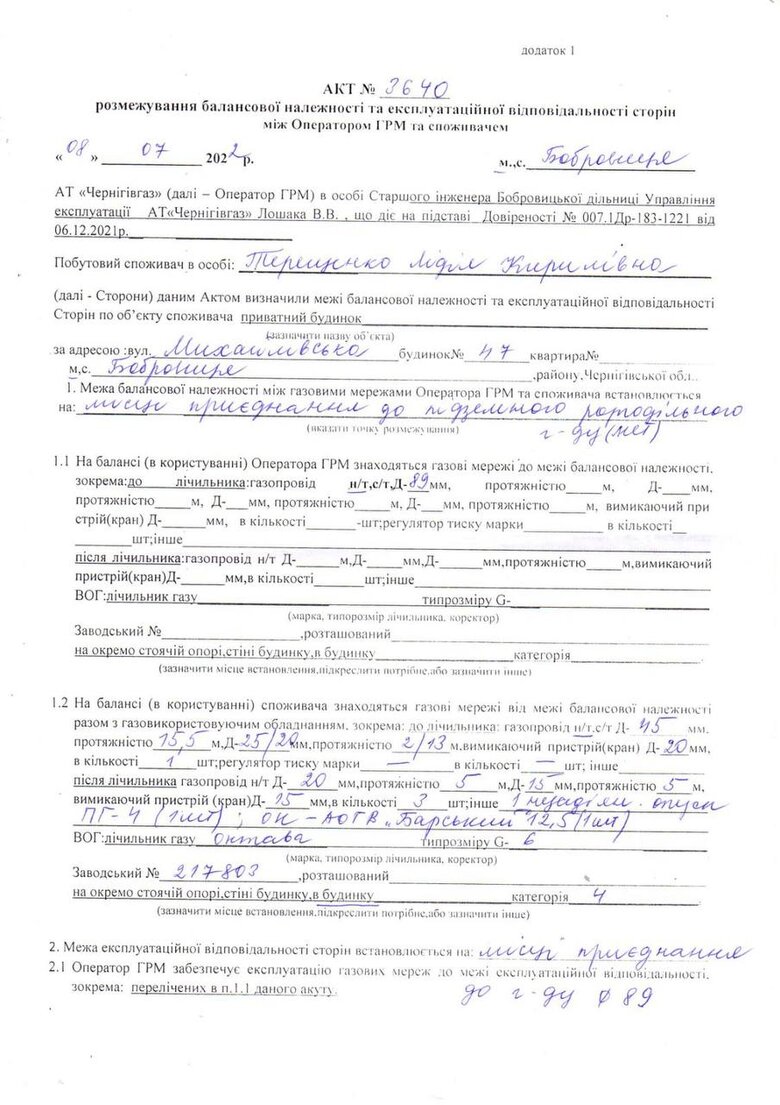 додаток 1
АКТ № 3640
розмежування балансової належності та експлуатаційної відповідальності сторін
між Оператором ГРМ та споживачем
« 08 » 07 2022р. м.,с. Бобровиця
АТ «Чернігівгаз» (далі – Оператор ГРМ) в особі Старшого інженера Бобровицької дільниці Управління
експлуатації АТ«Чернігівгаз» Лошака В.В. , що діє на підставі Довіреності № 007.1Др-183-1221 від
06.12.2021р.
Побутовий споживач в особі: Терещенко Лідія Кирилівна
(далі - Сторони) даним Актом визначили межі балансової належності та експлуатаційної відповідальності
Сторін по об'єкту споживача приватний будинок
(зазначити назву об'єкта)
за адресою :вул. Михайлівська будинок№ 47 квартира№
м,с. Бобровиця ,району,Чернігівської обл..
1. Межа балансової належності між газовими мережами Оператора ГРМ та споживача встановлюється
на: місці приєднання до підземного розподільного
(вказати точку розмежування) г-ду (мст)
1.1 На балансі (в користуванні) Оператора ГРМ знаходяться газові мережі до межі балансової належності,
зокрема:до лічильника:газопровід н/т,с/т,Д-89мм, протяжністю м, Д- мм,
протяжністю м, Д- мм, протяжністю м, Д- мм, протяжністю м, вимикаючий при
стрій(кран) Д- мм, в кількості -шт;регулятор тиску марки в кількості
шт;інше
після лічильника:газопровід н/т Д- м,Д- мм,Д- мм,протяжністю м,вимикаючий
пристрій(кран)Д- мм,в кількості шт;інше
ВОГ:лічильник газу типрозміру G-
(марка, типорозмір лічильника, коректор)
Заводський № ,розташований
на окремо стоячій опорі,стіні будинку,в будинку категорія
(зазначити місце встановлення,підкреслити потрібне,або зазначити інше)
1.2 На балансі (в користуванні) споживача знаходяться газові мережі від межі балансової належності
разом з газовикористовуючим обладнанням, зокрема: до лічильника: газопровід н/т,с/т Д- 45 мм,
протяжністю 15,5 м,Д-25/20мм,протяжністю 2/13 м,вимикаючий пристрій(кран) Д-20мм,
в кількості 1 шт;регулятор тиску марки — в кількості — шт; інше
після лічильника газопровід н/т Д- 20 мм,протяжністю 5 м,Д-15 мм,протяжністю 5 м,
вимикаючий пристрій (кран)Д- 15 мм,в кількості 3 шт;інше 1
ПГ-4 (1шт) ; ОК - АОГВ „Барський" 12,5 (1шт)
ВОГ:лічильник газу октава типрозміру G- 6
(марка, типорозмір лічильника, коректор)
Заводський № 217803 ,розташований
на окремо стоячій опорі,стіні будинку,в будинку категорія 4
(зазначити місце встановлення,підкреслити потрібне,або зазначити інше)
2. Межа експлуатаційної відповідальності сторін встановлюється на: місці приєднання
2.1 Оператор ГРМ забезпечує експлуатацію газових мереж до межі експлуатаційної відповідальності,
зокрема: перелічених в п.1.1 даного акуту. до г-ду ф 89